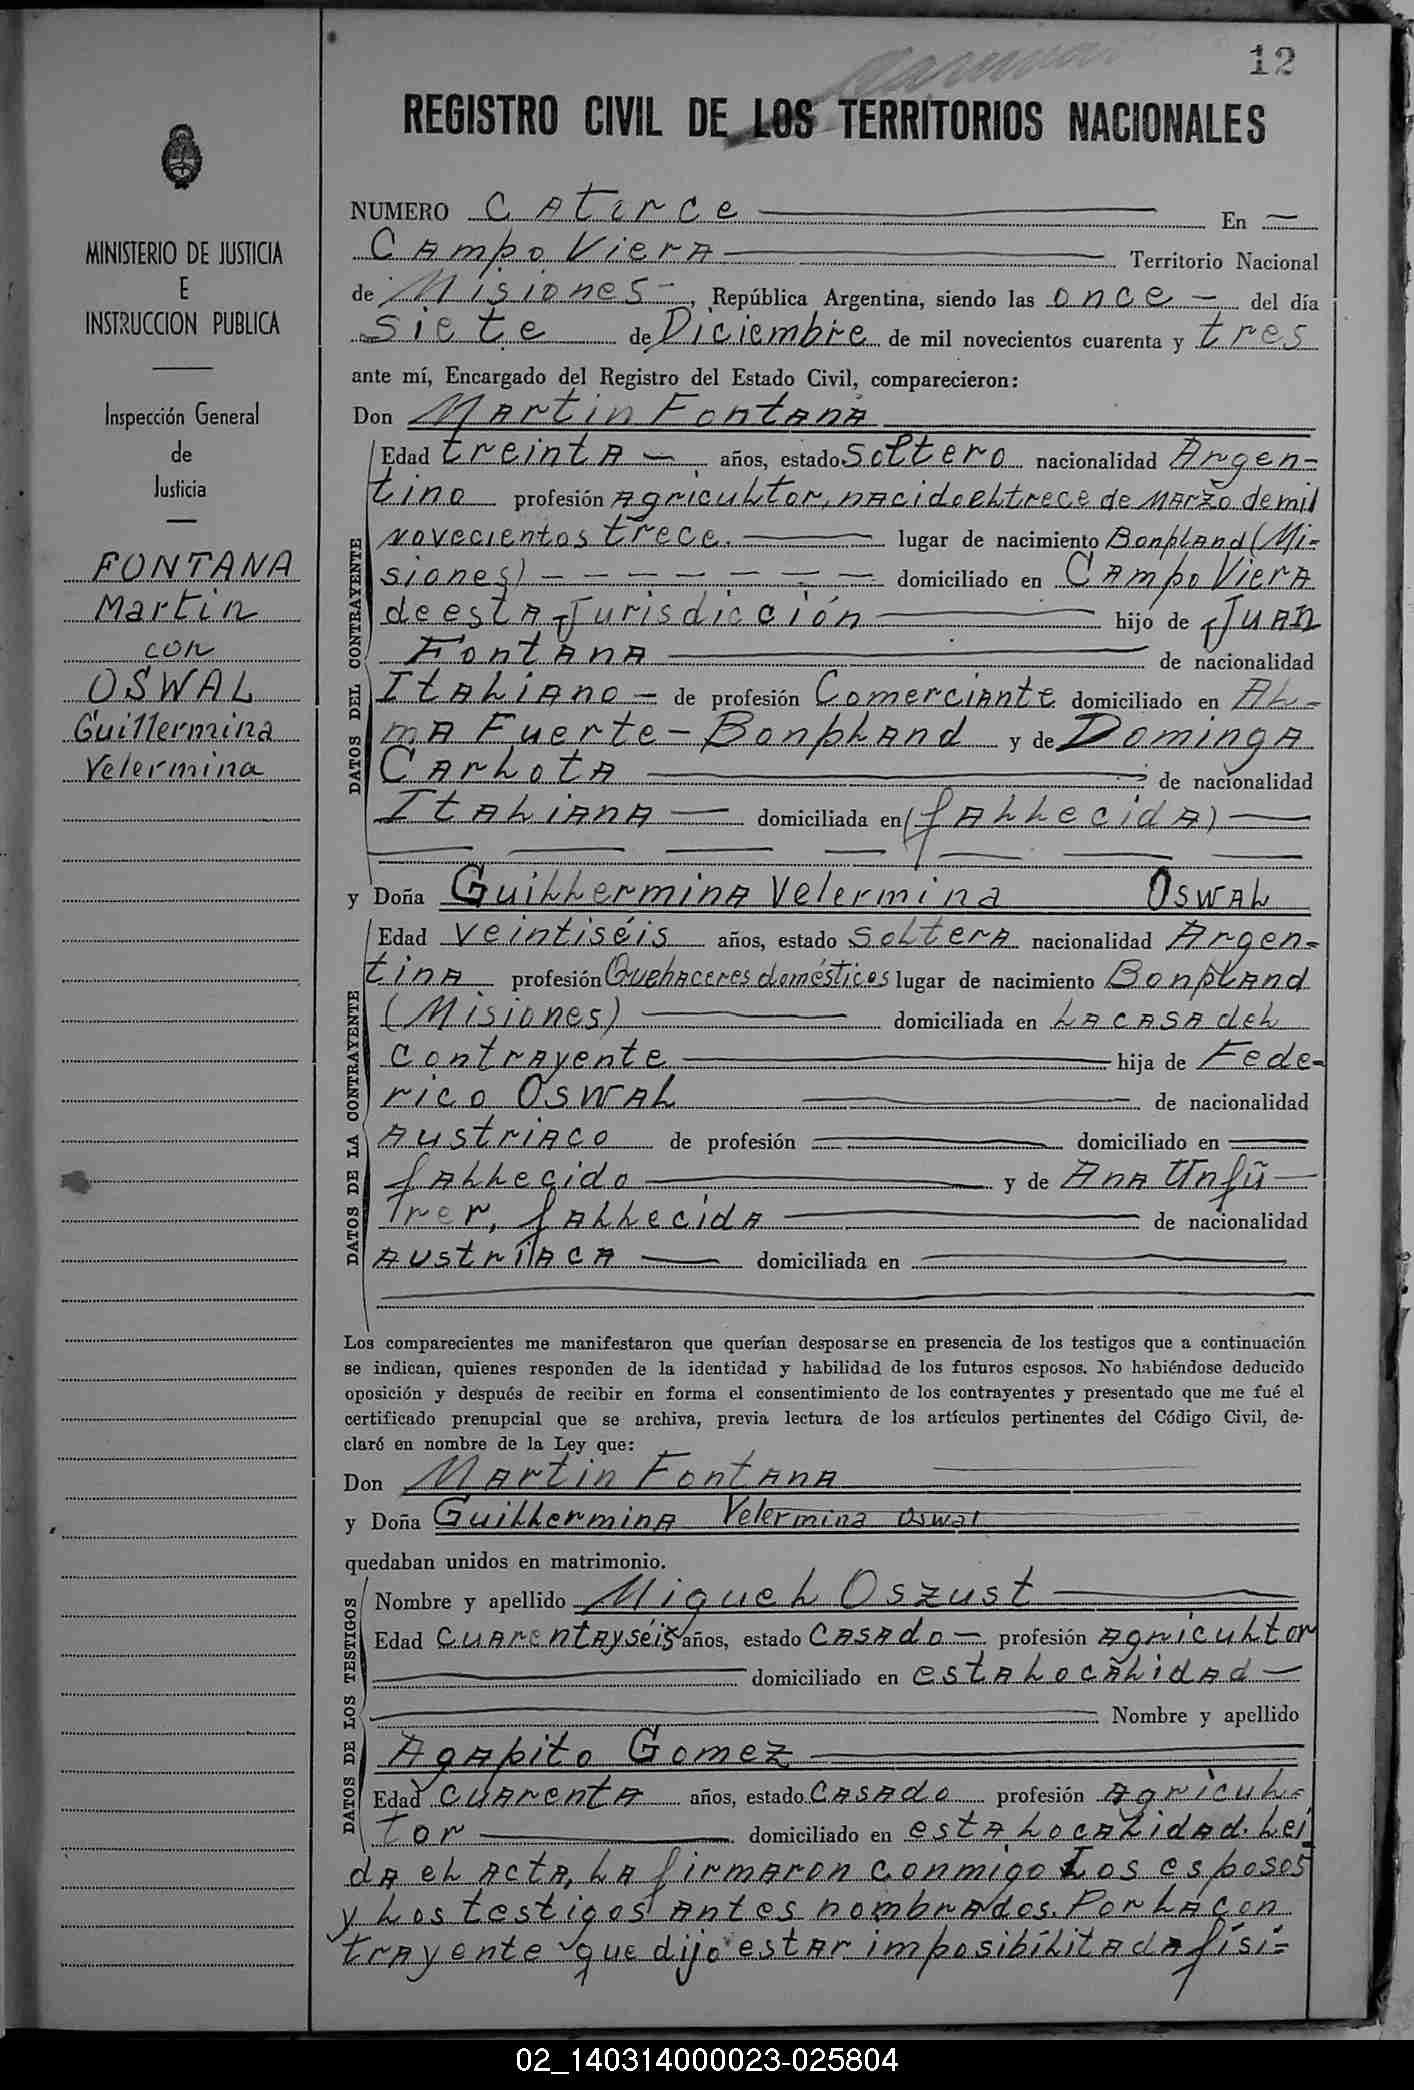 12
REGISTRO CIVIL DE LOS TERRITORIOS NACIONALES
MINISTERIO DE JUSTICIA
E
INSTRUCCION PUBLICA
Inspección General
de
Justicia
FONTANA
Martin
con
OSWAL
Guillermina
Velermina
NUMERO Catorce En
Campo Viera Territorio Nacional
de Misiones, República Argentina, siendo las once del día
siete de Diciembre de mil novecientos cuarenta y tres
ante mí, Encargado del Registro del Estado Civil, comparecieron:
Don Martin Fontana
DATOS DEL CONTRAYENTE
Edad treinta años, estado soltero nacionalidad Argen-
tino profesión agricultor, nacido el trece de Marzo de mil
novecientos trece. lugar de nacimiento Bonpland (Mi-
siones) domiciliado en Campo Viera
de esta Jurisdicción hijo de Juan
Fontana de nacionalidad
Italiano de profesión Comerciante domiciliado en Al-
ma Fuerte - Bonpland y de Dominga
Carlota de nacionalidad
Italiana domiciliada en (fallecida)
y Doña Guillermina Velermina Oswal
DATOS DE LA CONTRAYENTE
Edad veintiséis años, estado soltera nacionalidad Argen-
tina profesión Quehaceres domésticos lugar de nacimiento Bonpland
(Misiones) domiciliada en la casa del
contrayente hija de Fede-
rico Oswal de nacionalidad
austriaco de profesión domiciliado en
fallecido y de Ana Unfü
trer, fallecida de nacionalidad
austriaca domiciliada en
Los comparecientes me manifestaron que querían desposarse en presencia de los testigos que a continuación
se indican, quienes responden de la identidad y habilidad de los futuros esposos. No habiéndose deducido
oposición y después de recibir en forma el consentimiento de los contrayentes y presentado que me fué el
certificado prenupcial que se archiva, previa lectura de los artículos pertinentes del Código Civil, de-
claró en nombre de la Ley que:
Don Martin Fontana
y Doña Guillermina Velermina Oswal
quedaban unidos en matrimonio.
DATOS DE LOS TESTIGOS
Nombre y apellido Miguel Oszust
Edad cuarenta y séis años, estado casado profesión agricultor
domiciliado en esta localidad
Nombre y apellido
Agapito Gomez
Edad cuarenta años, estado casado profesión agricul-
tor domiciliado en esta localidad. Leí
da el acta, la firmaron conmigo los esposos
y los testigos antes nombrados. Por la con
trayente que dijo estar imposibilitada físi-
02_140314000023-025804